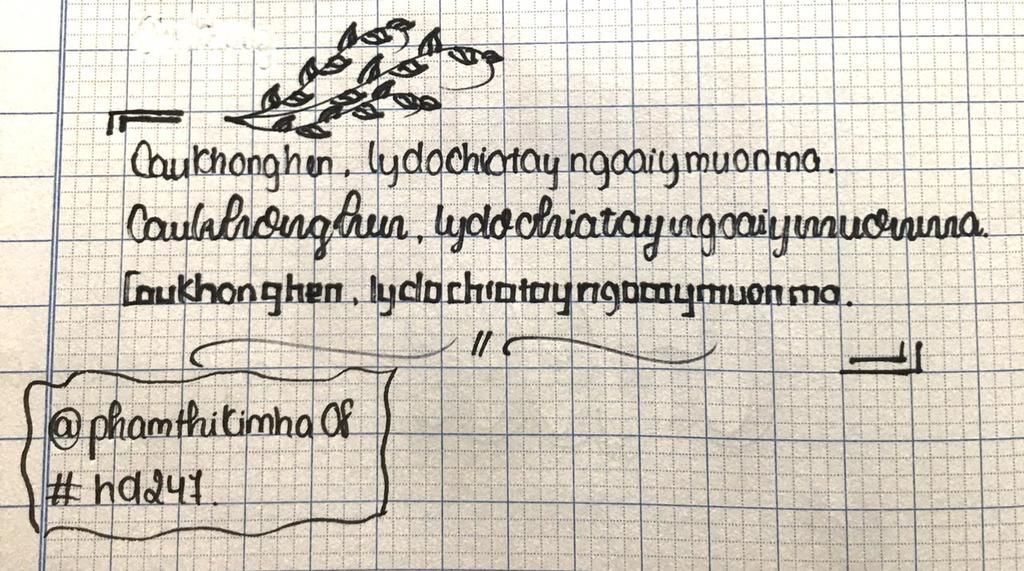 Caukhonghen, lydochiatay ngoaiymuonma.
Caukhonghen, lydochiatayngoaiymuonma.
Caukhonghen, lydochiatayngoaiymuonma.
@phamthikimha08
#hd247.